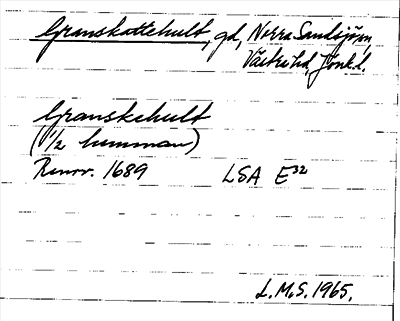 Granskattehult, gd, Norra Sandsjö sn,
Västra hd, Jönk. l.
Granskehult
(1/2 hemman)
Renov. 1689 LSA E32
L.M.S. 1965.